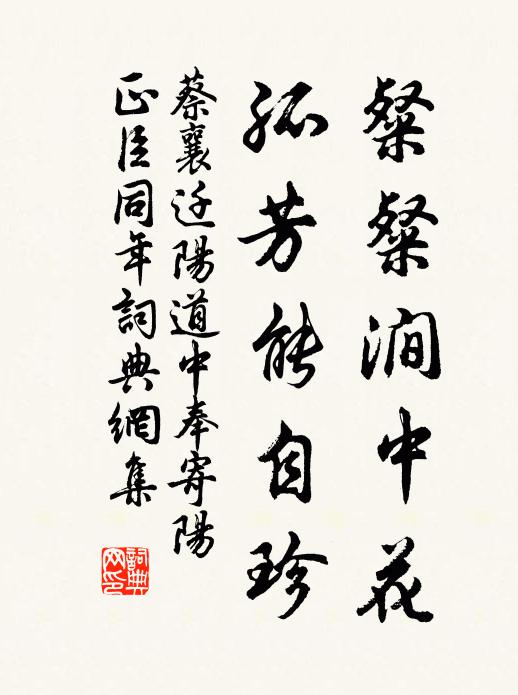 粲粲澗中花
孤芳能自珍
蔡襄迁陽道中奉寄陽
正臣同年詞典網集
詞典网印